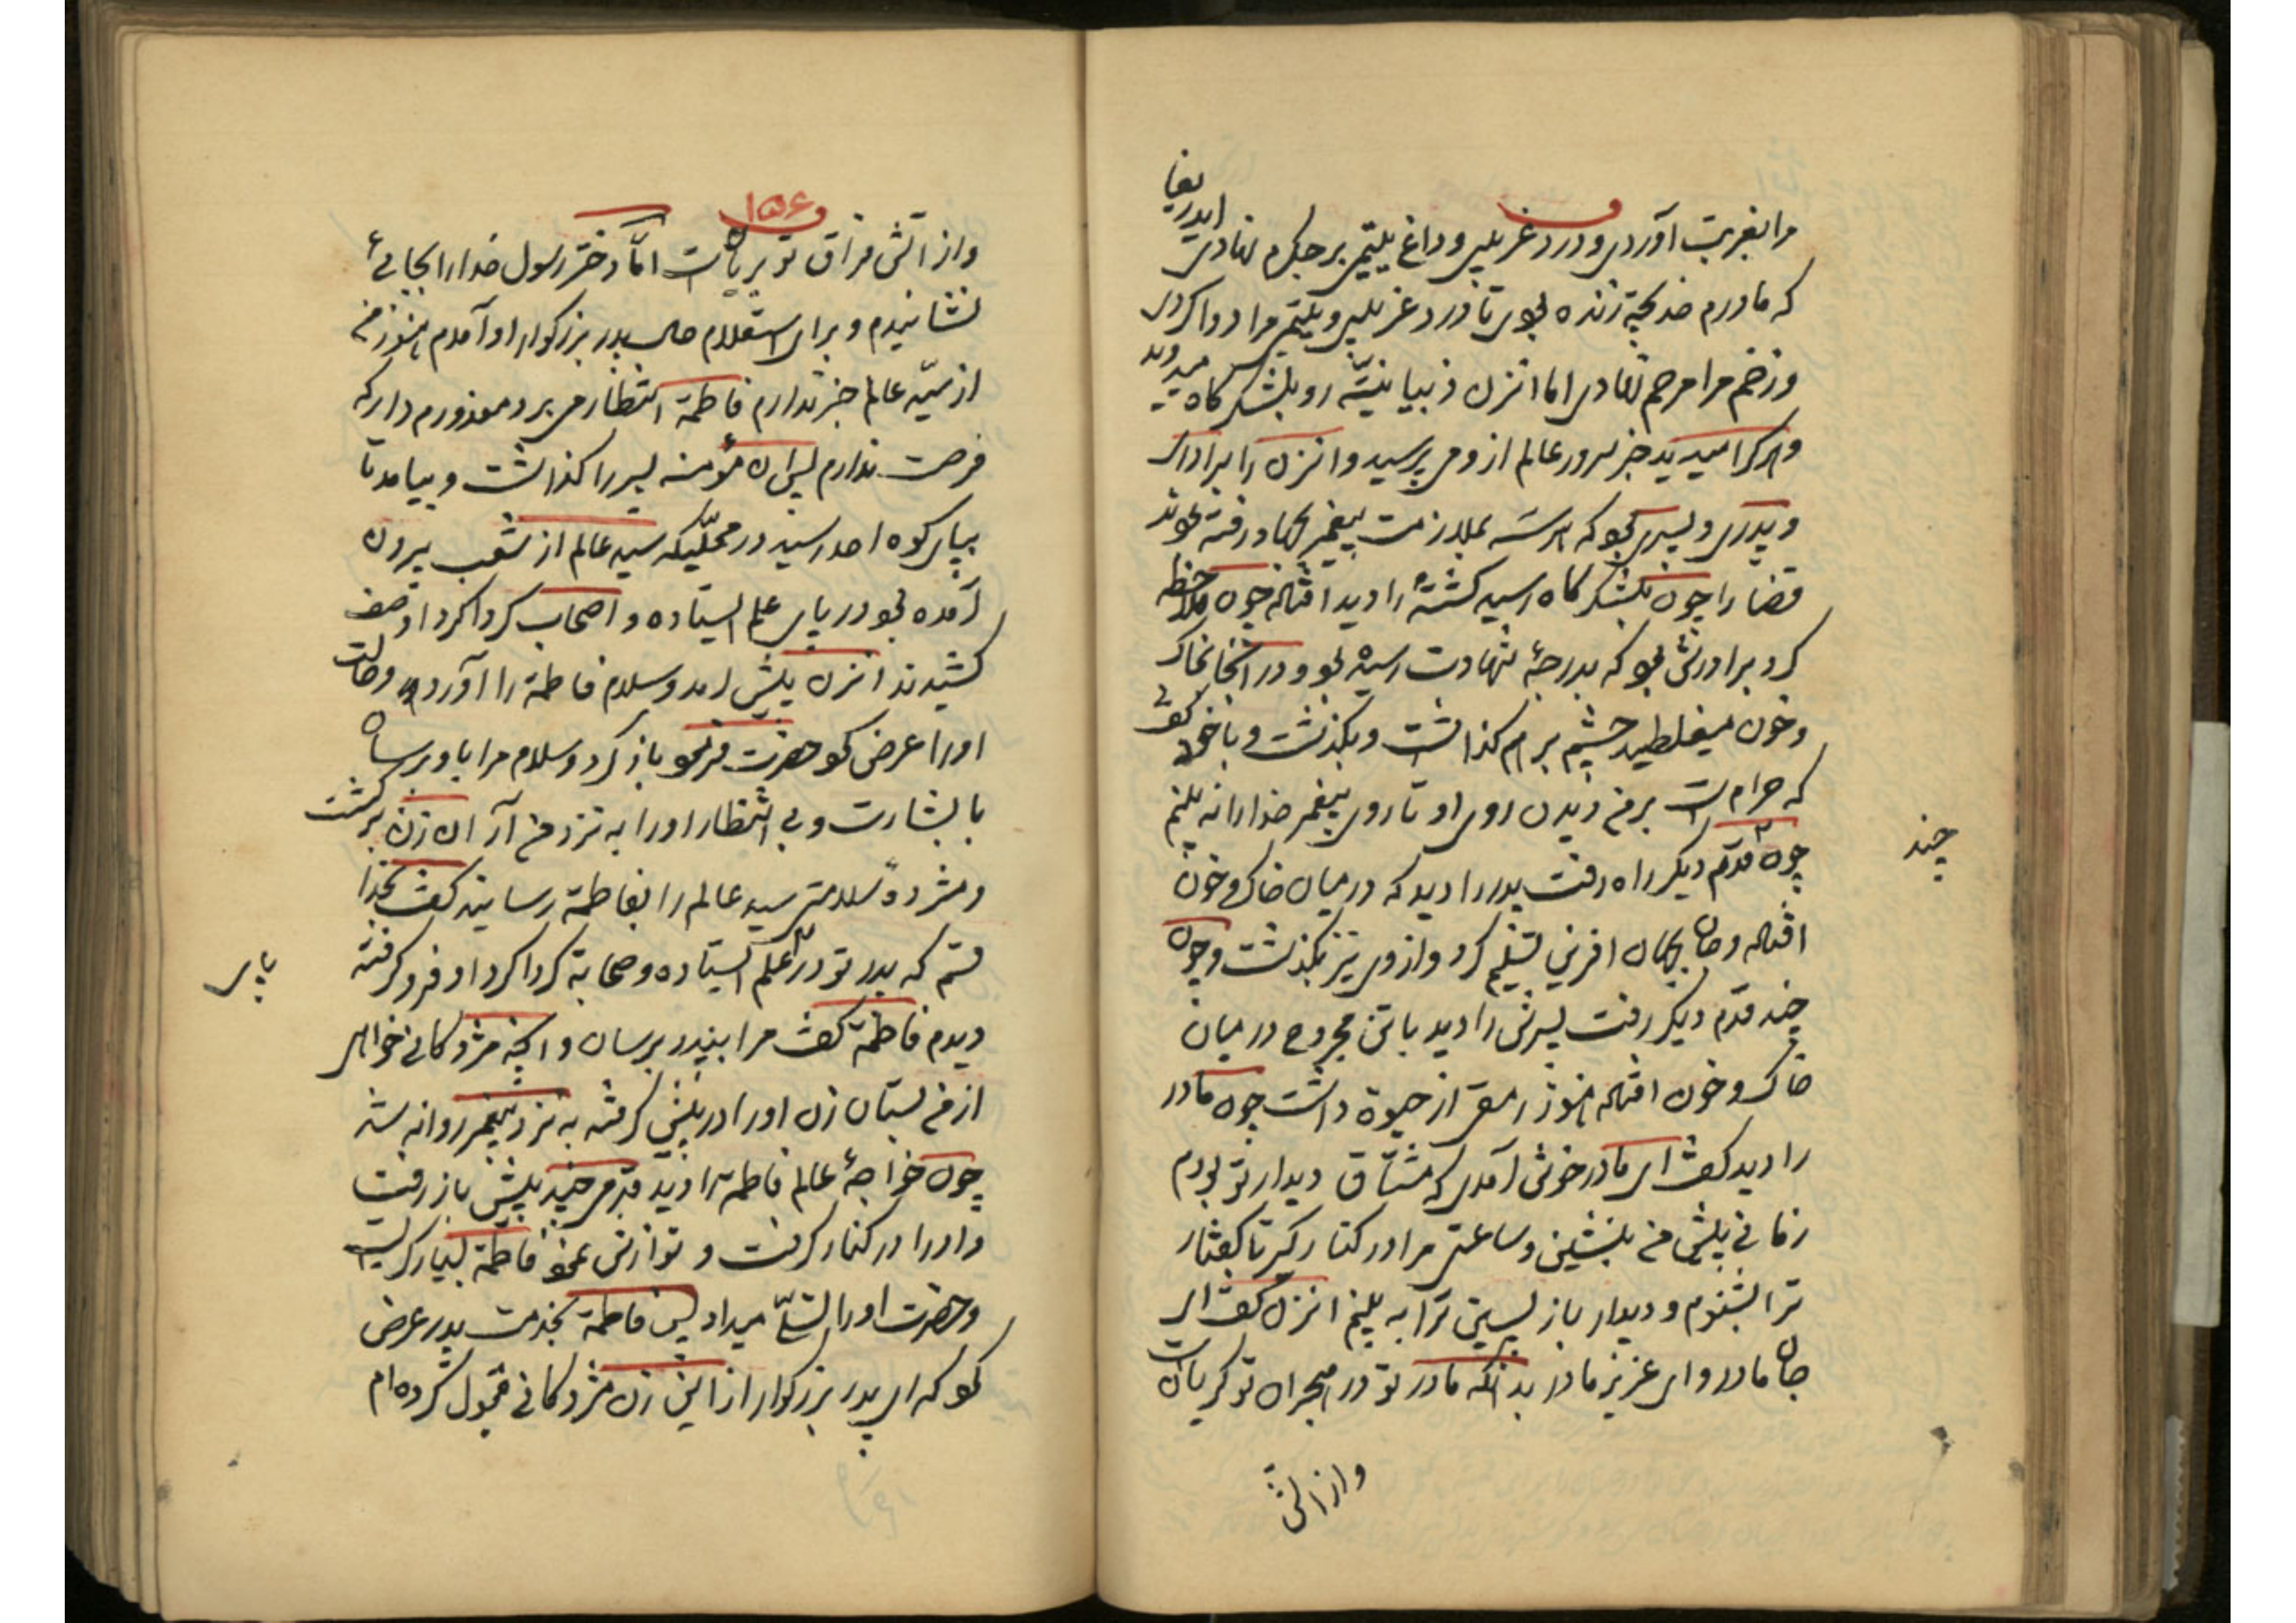 مرا بغربت آوردی و درد غریبی و داغ یتیمی بر جکرم نهادی ایدریغا
که مادرم خدیجه زنده بودی تا درد غریبی و یتیمی مرا دوا کردی
و زخم مرا مرحم نهادی اما انزن ذبیانیه رو بلشکر کاه میدوید
و هر کرا میدید خبر سرور عالم از وی پرسید و انزن را برادری
و پدری و پسری بود که هر سه بملازمت پیغمبر بجهاد رفته بودند
قضا را چون بلشکر کاه رسید کشتهٔ را دید افتاده چون ملاحظه
کرد برادرش بود که بدرجهٔ شهادت رسیده بود و در انجا بخاک
و خون میغلطید چشم برهم کذاشت و بکذشت و با خود کفت
که حرامست بر من دیدن روی او تا روی پیغمبر خدا را نه بینم
چون قدم دیکر راه رفت پدر را دید که در میان خاک و خون
چند
افتاده و جان بجهان افرین تسلیم کرد و از وی نیز بکذشت و چون
چند قدم دیکر رفت پسرش را دید با تن مجروح در میان
خاک و خون افتاده هنوز رمقی از حیوة داشت چون مادر
را دید کفت ای مادر خوش آمدی که مشتاق دیدار تو بودم
زمانی پیش من بنشین و ساعتی مرا در کنار کیر تا کفتار
ترا بشنوم و دیدار باز پسین ترا به بینم انزن کفت ای
جان مادر و ای عزیز مادر بدانکه مادر تو در هجران تو کریانست
و از اتش
۱۵۶
و از اتش فراق تو بریانست امّا دختر رسول خدا را بجائی
نشانیدم و برای استعلام حال پدر بزرکوار او آمدم هنوز من
از سیّد عالم خبر ندارم فاطمة انتظار می برد معذورم دار که
فرصت ندارم پس ان مؤمنه پسر را کذاشت و بیامد تا
بپای کوه احد رسید در محلّیکه سید عالم از شعب بیرون
آمده بود در پای علم ایستاده و اصحاب کرداکرد او صف
کشیدند انزن پیش آمد و سلام فاطمة را آورد و حالت
او را عرض کرد حضرت فرمود باز کرد و سلام مرا باو رسان
با بشارت و بی انتظار او را به نزد من آر ان زن برکشت
و مژدهٔ سلامتی سید عالم را بفاطمة رسانید کفت بخدا
قسم که پدر تو در علم ایستاده و صحابة کرداکرد او فرو کرفته
پای
دیدم فاطمة کفت مرا بنزد پدر برسان و انچه مژدکانی خواهی
از من بستان زن او را در پیش کرفته به نزد پیغمبر روانه شد
چون خواجهٔ عالم فاطمه را دید قدمی چند پیش باز رفت
و او را در کنار کرفت و نوازش نمود فاطمة بسیار کریست
و حضرت او را تسلّی میداد پس فاطمة بخدمت پدر عرض
نمود که ای پدر بزرکوار از این زن مژدکانی قبول کرده ام